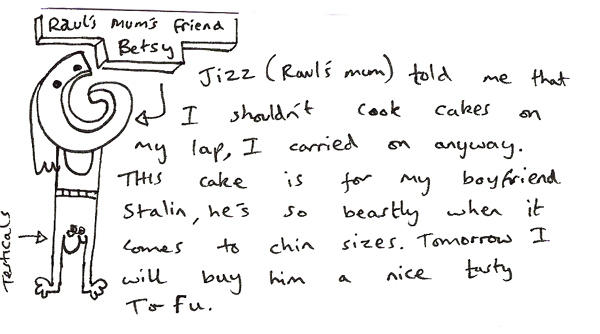 Raul's Mum's Friend
Betsy
Jizz (Raul's mum) told me that
I shouldn't cook cakes on
my lap, I carried on anyway.
THIS cake is for my boyfriend
Stalin, he's so beastly when it
comes to chin sizes. Tomorrow I
will buy him a nice tasty
To-fu.
Testicals